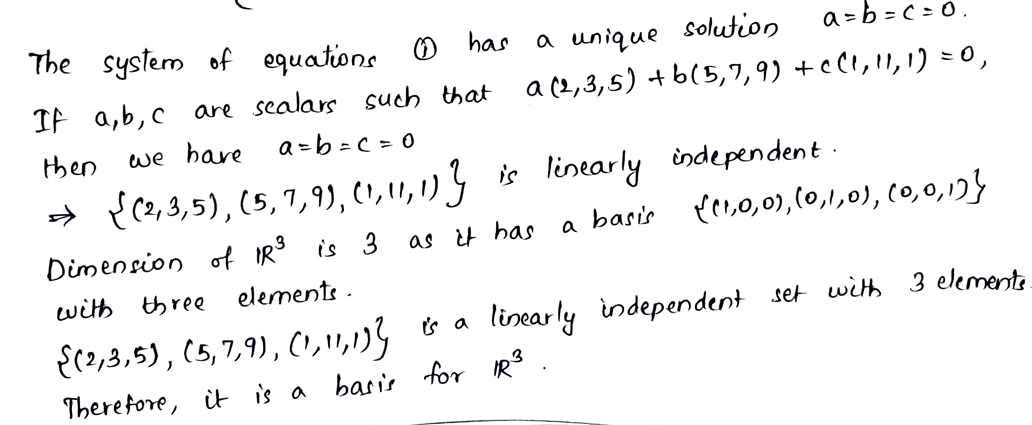 The system of equations ① has a unique solution a=b=c=0.
If a,b,c are scalars such that a(2,3,5)+b(5,7,9)+c(1,11,1)=0,
then we have a=b=c=0
⇒ {(2,3,5),(5,7,9),(1,11,1)} is linearly independent.
Dimension of ℝ³ is 3 as it has a basis {(1,0,0),(0,1,0),(0,0,1)}
with three elements.
{(2,3,5),(5,7,9),(1,11,1)} is a linearly independent set with 3 elements.
Therefore, it is a basis for ℝ³.